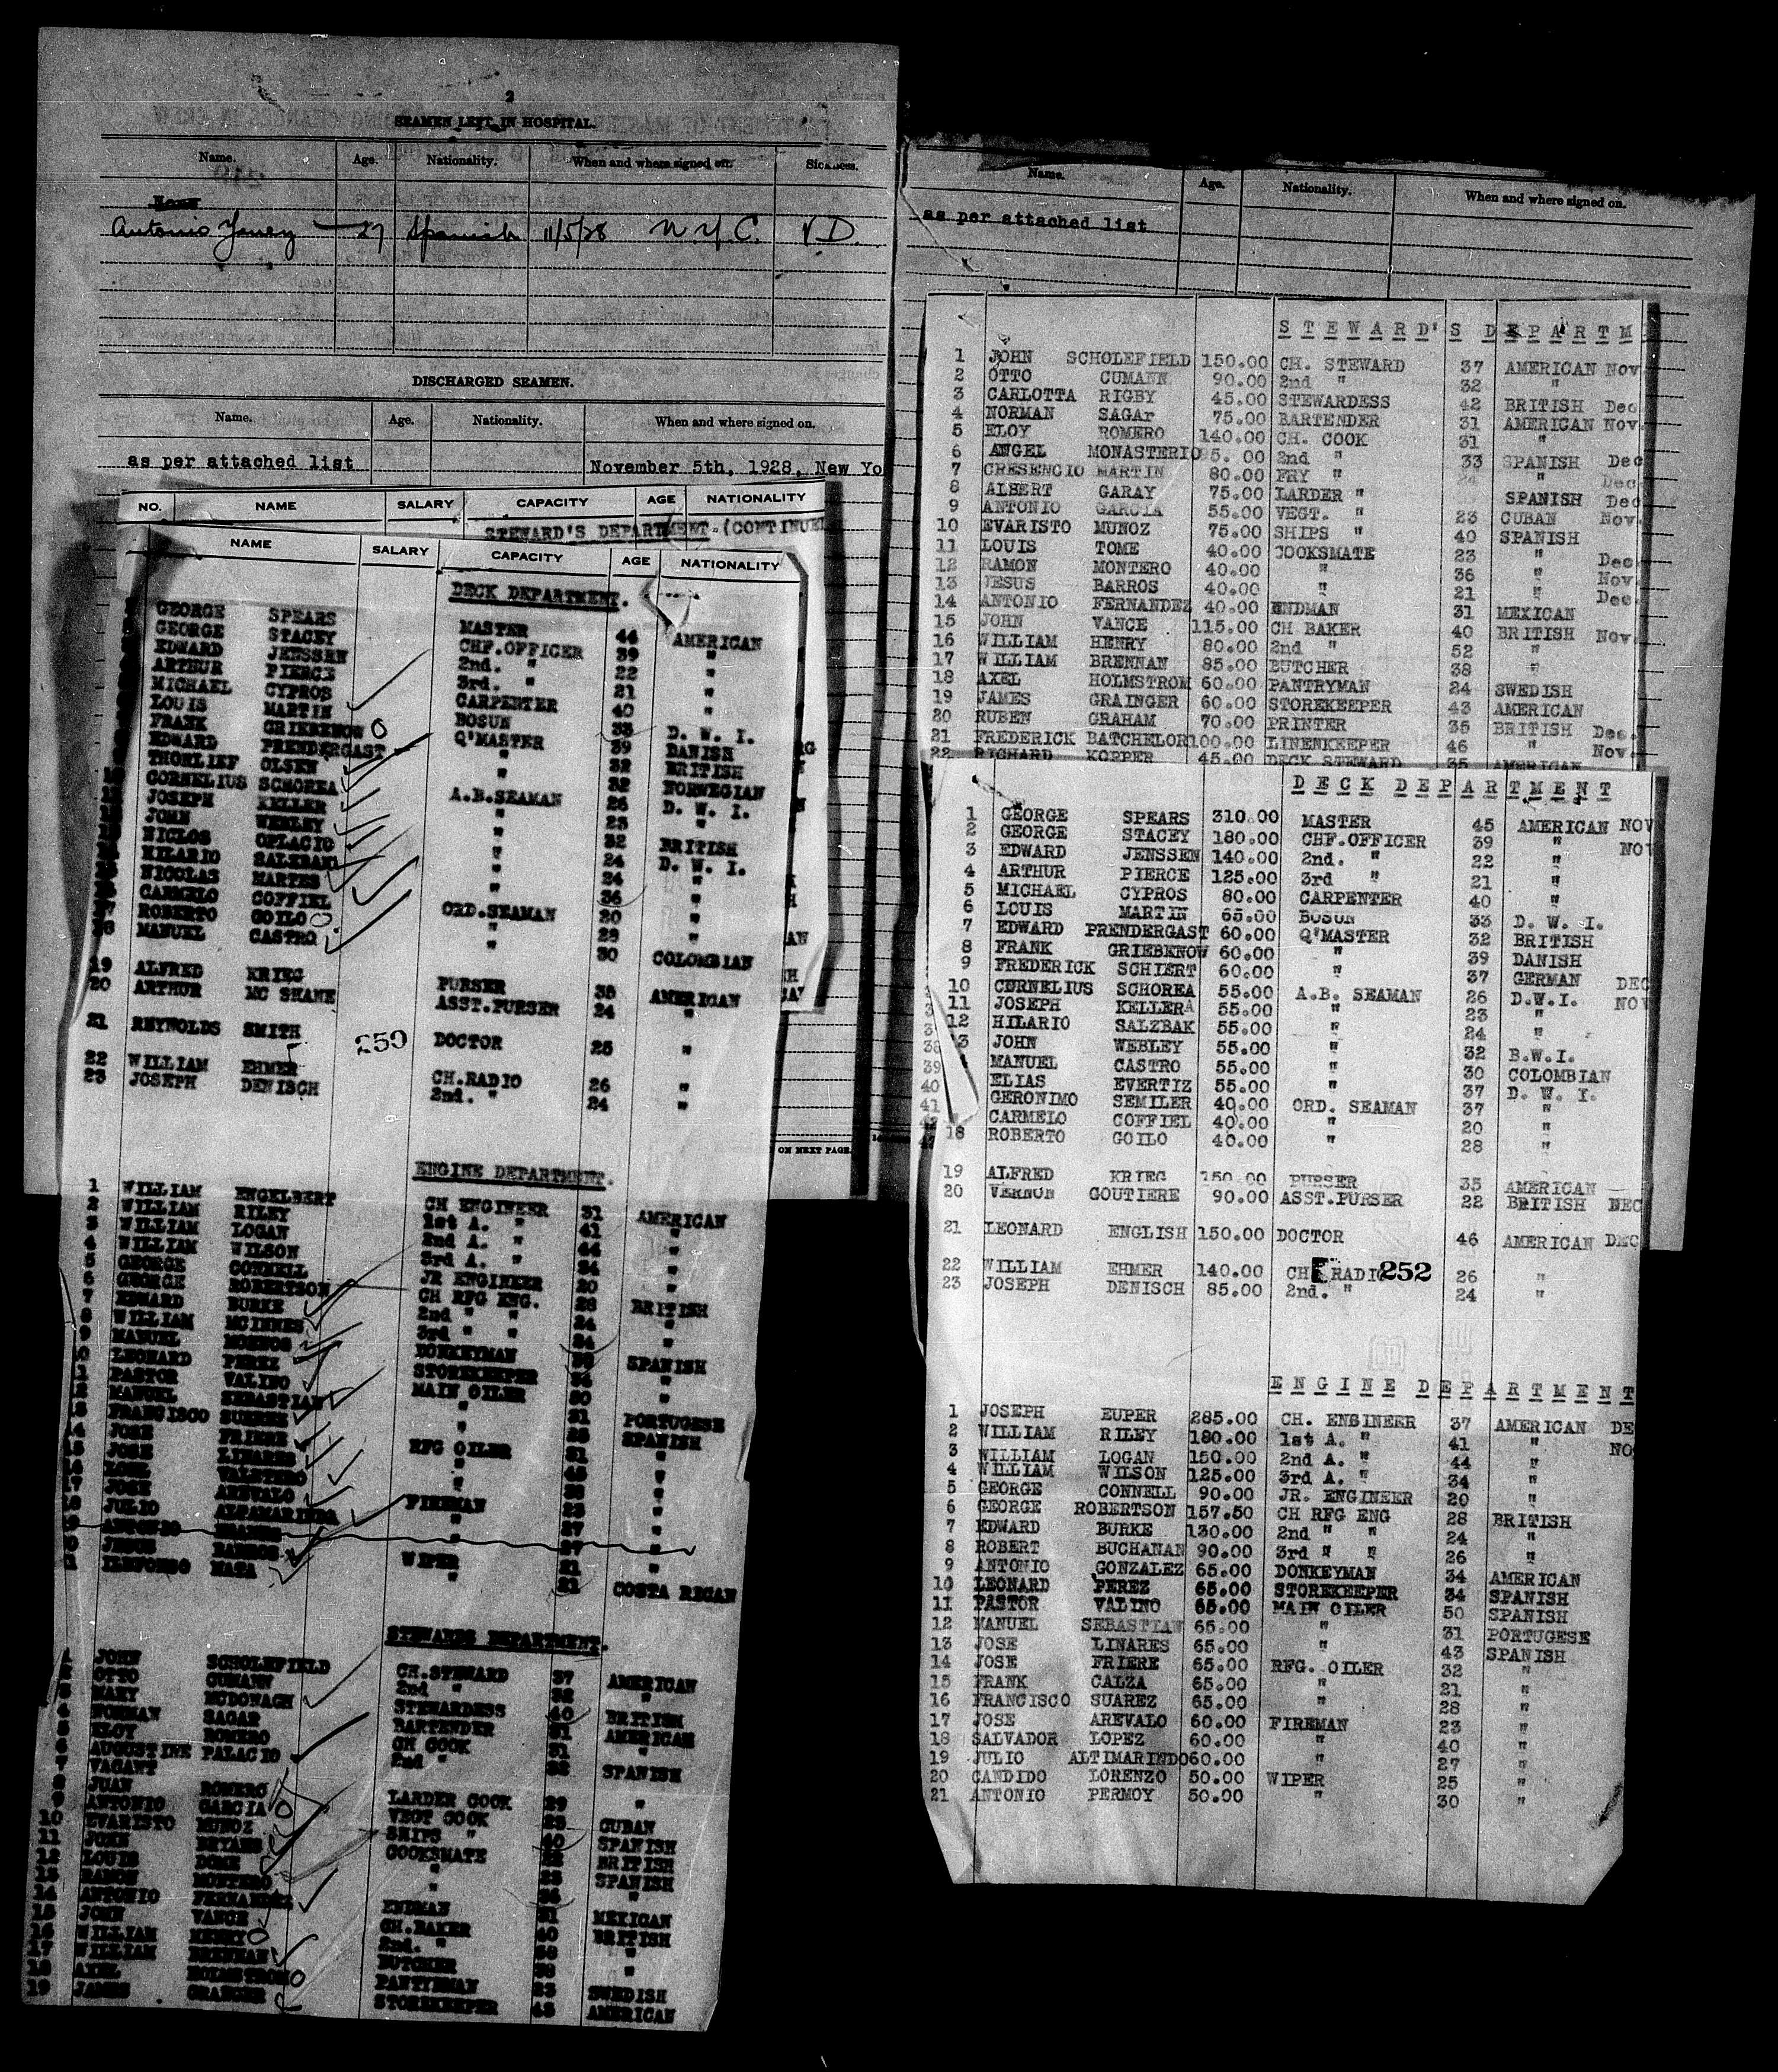 2
SEAMEN LEFT IN HOSPITAL.
Name. Age. Nationality. When and where signed off. Sickness.
None
Antonio 27 Spanish 11/5/28 N.Y.C. V.D.
DISCHARGED SEAMEN.
Name. Age. Nationality. When and where signed on.
as per attached list November 5th, 1928, New Yo
NO. NAME SALARY CAPACITY AGE NATIONALITY
STEWARD'S DEPARTMENT. (CONTINUE
NAME SALARY CAPACITY AGE NATIONALITY
DECK DEPARTMENT.
GEORGE SPEARS MASTER 44 AMERICAN
GEORGE STACEY CHF.OFFICER 39 "
EDWARD JENSSEN 2nd. " 22 "
ARTHUR PIERCE 3rd. " 21 "
MICHAEL CYPROS CARPENTER 40 "
LOUIS MARTIN BOSUN 33 D. W. I.
FRANK GRIEBENOW Q'MASTER 39 DANISH
EDWARD PRENDERGAST " 32 BRITISH
THORLIEF OLSEN " 32 NORWEGIAN
CORNELIUS SCHOREA A.B.SEAMAN 26 D. W. I.
JOSEPH KELLER " 23 "
JOHN WEBLEY " 32 BRITISH
NICLOS OPLACIO " 24 D. W. I.
HILARIO SALZBAK " 24 "
NICOLAS MARTES " 36 "
CARMELO COFFIEL ORD.SEAMAN 20 "
ROBERTO GOILO " 28 "
MANUEL CASTRO " 30 COLOMBIAN
19 ALFRED KRIEG PURSER 35 AMERICAN
20 ARTHUR MC SHANE ASST.PURSER 24 "
21 REYNOLDS SMITH 250 DOCTOR 25 "
22 WILLIAM EHMER CH.RADIO 26 "
23 JOSEPH DENISCH 2nd. " 24 "
ON NEXT PAGE.
ENGINE DEPARTMENT.
1 WILLIAM ENGELBERT CH ENGINEER 31 AMERICAN
2 WILLIAM RILEY 1st A. " 41 "
3 WILLIAM LOGAN 2nd A. " 44 "
4 WILLIAM WILSON 3rd A. " 34 "
5 GEORGE CONNELL JR ENGINEER 20 "
6 GEORGE ROBERTSON CH RFG ENG. 28 BRITISH
7 EDWARD BURKE 2nd " " 24 "
8 WILLIAM MCINNES 3rd " " 24 "
9 MANUEL DONKEYMAN SPANISH
0 LEONARD PEREZ STOREKEEPER 34 "
1 PASTOR VALINO MAIN OILER 50 "
2 MANUEL SEBASTIAN " 31 PORTUGESE
3 FRANCISCO SUAREZ " SPANISH
4 JOSE FRIERE RFG OILER 31 "
15 JOSE LINARES " "
16 JOSE "
17 JOSE AREVALO FIREMAN 23 "
18 JULIO ALTAMARINDA " 27 "
19 ANTONIO " 27 "
0 JESUS WIPER 21 "
1 ILDEFONSO MATA " 21 COSTA RICAN
STEWARDS DEPARTMENT.
1 JOHN SCHOLEFIELD CH.STEWARD 37 AMERICAN
2 OTTO CUMANN 2nd " 32 "
3 MARY MCDONAGH STEWARDESS 40 BRITISH
4 NORMAN SAGAR BARTENDER 31 AMERICAN
5 ELOY ROMERO CH COOK 31 "
6 AUGUSTINE PALACIO 2nd " 32 SPANISH
7 VACANT
8 JUAN ROMERO LARDER COOK 29 "
9 ANTONIO GARCIA VEGT COOK 23 CUBAN
10 EVARISTO MUNOZ SHIPS " 40 SPANISH
11 JOHN COOKSMATE BRITISH
12 LOUIS " 23 SPANISH
13 RAMON MONTERO " "
14 ANTONIO FERNANDEZ ENDMAN 31 MEXICAN
15 JOHN VANCE CH.BAKER 40 BRITISH
16 WILLIAM HENRY 2nd. " "
17 WILLIAM BRENNAN BUTCHER 38 "
18 AXEL HOLMSTROM PANTYRMAN 23 SWEDISH
19 JAMES GRANGER STOREKEEPER 43 AMERICAN
Name. Age. Nationality. When and where signed on.
as per attached list
STEWARD'S DEPARTM
1 JOHN SCHOLEFIELD 150.00 CH. STEWARD 37 AMERICAN Nov
2 OTTO CUMANN 90.00 2nd " 32 "
3 CARLOTTA RIGBY 45.00 STEWARDESS 42 BRITISH Dec
4 NORMAN SAGAr 75.00 BARTENDER 31 AMERICAN Nov.
5 ELOY ROMERO 140.00 CH. COOK 31 "
6 ANGEL MONASTERIO 95. 00 2nd " 33 SPANISH Dec
7 CRESENCIO MARTIN 80.00 FRY " 24 " Dec.
8 ALBERT GARAY 75.00 LARDER " SPANISH Dec
9 ANTONIO GARCIA 55.00 VEGT. " 23 CUBAN Nov.
10 EVARISTO MUNOZ 75.00 SHIPS " 40 SPANISH
11 LOUIS TOME 40.00 COOKSMATE 23 " Dec.
12 RAMON MONTERO 40.00 " 36 " Nov.
13 JESUS BARROS 40.00 " 21 " Dec.
14 ANTONIO FERNANDEZ 40.00 ENDMAN 31 MEXICAN
15 JOHN VANCE 115.00 CH BAKER 40 BRITISH Nov.
16 WILLIAM HENRY 80.00 2nd " 52 "
17 WILLIAM BRENNAN 85.00 BUTCHER 38 "
18 AXEL HOLMSTROM 60.00 PANTRYMAN 24 SWEDISH
19 JAMES GRAINGER 60.00 STOREKEEPER 43 AMERICAN
20 RUBEN GRAHAM 70.00 PRINTER 35 BRITISH Dec.
21 FREDERICK BATCHELOR 100.00 LINENKEEPER 46 " Nov.
22 RICHARD KOPPER 45.00 DECK STEWARD 35 AMERICAN
DECK DEPARTMENT
1 GEORGE SPEARS 310.00 MASTER 45 AMERICAN NOV
2 GEORGE STACEY 180.00 CHF.OFFICER 39 " NOV
3 EDWARD JENSSEN 140.00 2nd. " 22 "
4 ARTHUR PIERCE 125.00 3rd " 21 "
5 MICHAEL CYPROS 80.00 CARPENTER 40 "
6 LOUIS MARTIN 65.00 BOSUN 33 D. W. I.
7 EDWARD PRENDERGAST 60.00 Q'MASTER 32 BRITISH
8 FRANK GRIEBENOW 60.00 " 39 DANISH
9 FREDERICK SCHIERT 60.00 " 37 GERMAN DEC
10 CORNELIUS SCHOREA 55.00 A.B. SEAMAN 26 D.W.I. NOV
11 JOSEPH KELLERA 55.00 " 23 "
12 HILARIO SALZBAK 55.00 " 24 "
3 JOHN WEBLEY 55.00 " 32 B.W.I.
MANUEL CASTRO 55.00 " 30 COLOMBIAN
ELIAS EVERTIZ 55.00 " 37 D. W. I.
GERONIMO SEMILER 40.00 ORD. SEAMAN 37 "
CARMELO COFFIEL 40.00 " 20 "
18 ROBERTO GOILO 40.00 " 28 "
19 ALFRED KRIEG 150.00 PURSER 35 AMERICAN
20 VERNON GOUTIERE 90.00 ASST.PURSER 22 BRITISH DEC
21 LEONARD ENGLISH 150.00 DOCTOR 46 AMERICAN DEC
22 WILLIAM EHMER 140.00 CH RADIO 252 26 "
23 JOSEPH DENISCH 85.00 2nd. " 24 "
ENGINE DEPARTMENT
1 JOSEPH EUPER 285.00 CH. ENGINEER 37 AMERICAN DE
2 WILLIAM RILEY 180.00 1st A. " 41 " NO
3 WILLIAM LOGAN 150.00 2nd A. " 44 "
4 WILLIAM WILSON 125.00 3rd A. " 34 "
5 GEORGE CONNELL 90.00 JR. ENGINEER 20 "
6 GEORGE ROBERTSON 157.50 CH RFG ENG 28 BRITISH
7 EDWARD BURKE 130.00 2nd " " 24 "
8 ROBERT BUCHANAN 90.00 3rd " " 26 "
9 ANTONIO GONZALEZ 65.00 DONKEYMAN 34 AMERICAN
10 LEONARD PEREZ 65.00 STOREKEEPER 34 SPANISH
11 PASTOR VALINO 65.00 MAIN OILER 50 SPANISH
12 MANUEL SEBASTIAN 65.00 " 31 PORTUGESE
13 JOSE LINARES 65.00 " 43 SPANISH
14 JOSE FRIERE 65.00 RFG. OILER 32 "
15 FRANK CALZA 65.00 " 21 "
16 FRANCISCO SUAREZ 65.00 " 28 "
17 JOSE AREVALO 60.00 FIREMAN 23 "
18 SALVADOR LOPEZ 60.00 " 40 "
19 JULIO ALTIMARINDO 60.00 " 27 "
20 CANDIDO LORENZO 50.00 WIPER 25 "
21 ANTONIO PERMOY 50.00 " 30 "